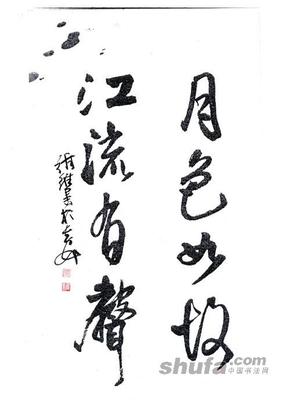 月色如故
江流有聲
shufa.com
中国书法网